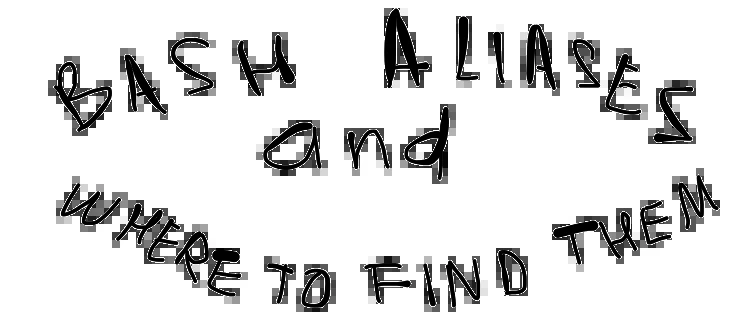 BASH ALIASES
and
WHERE TO FIND THEM